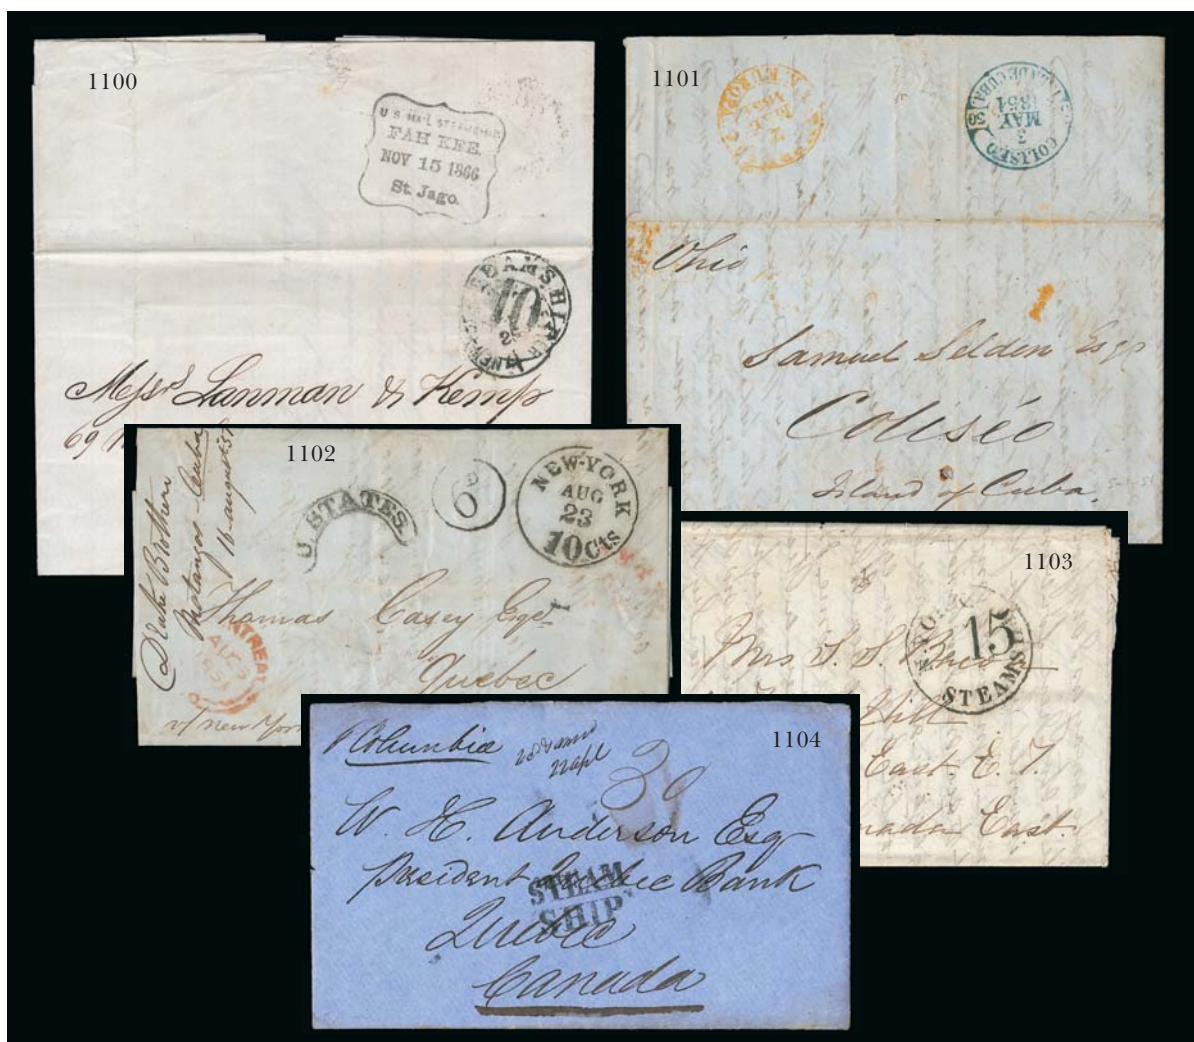 1100
U.S. MAIL STEAMSHIP
FAH KEE.
NOV 15 1866
St. Jago.
STEAMSHIP
10
Messrs Lanman & Kemp
69
1101
COLISEO
3
MAY
1851
Ohio
1
Samuel Selden Esqr
Coliséo
Island of Cuba.
1102
Drake Brothers
Matanzas Cuba
16 august
U. STATES
6D
NEW-YORK
AUG
23
10cts
Thomas Casey Esqr
MONTREAL
AU
Quebec
v/ new York
1103
15
STEAMSHIP
Mrs S. S.
Hill
East E. T.
Canada East.
1104
Columbia
30
W. H. Anderson Esq
President Quebec Bank
STEAM
SHIP
Quebec
Canada